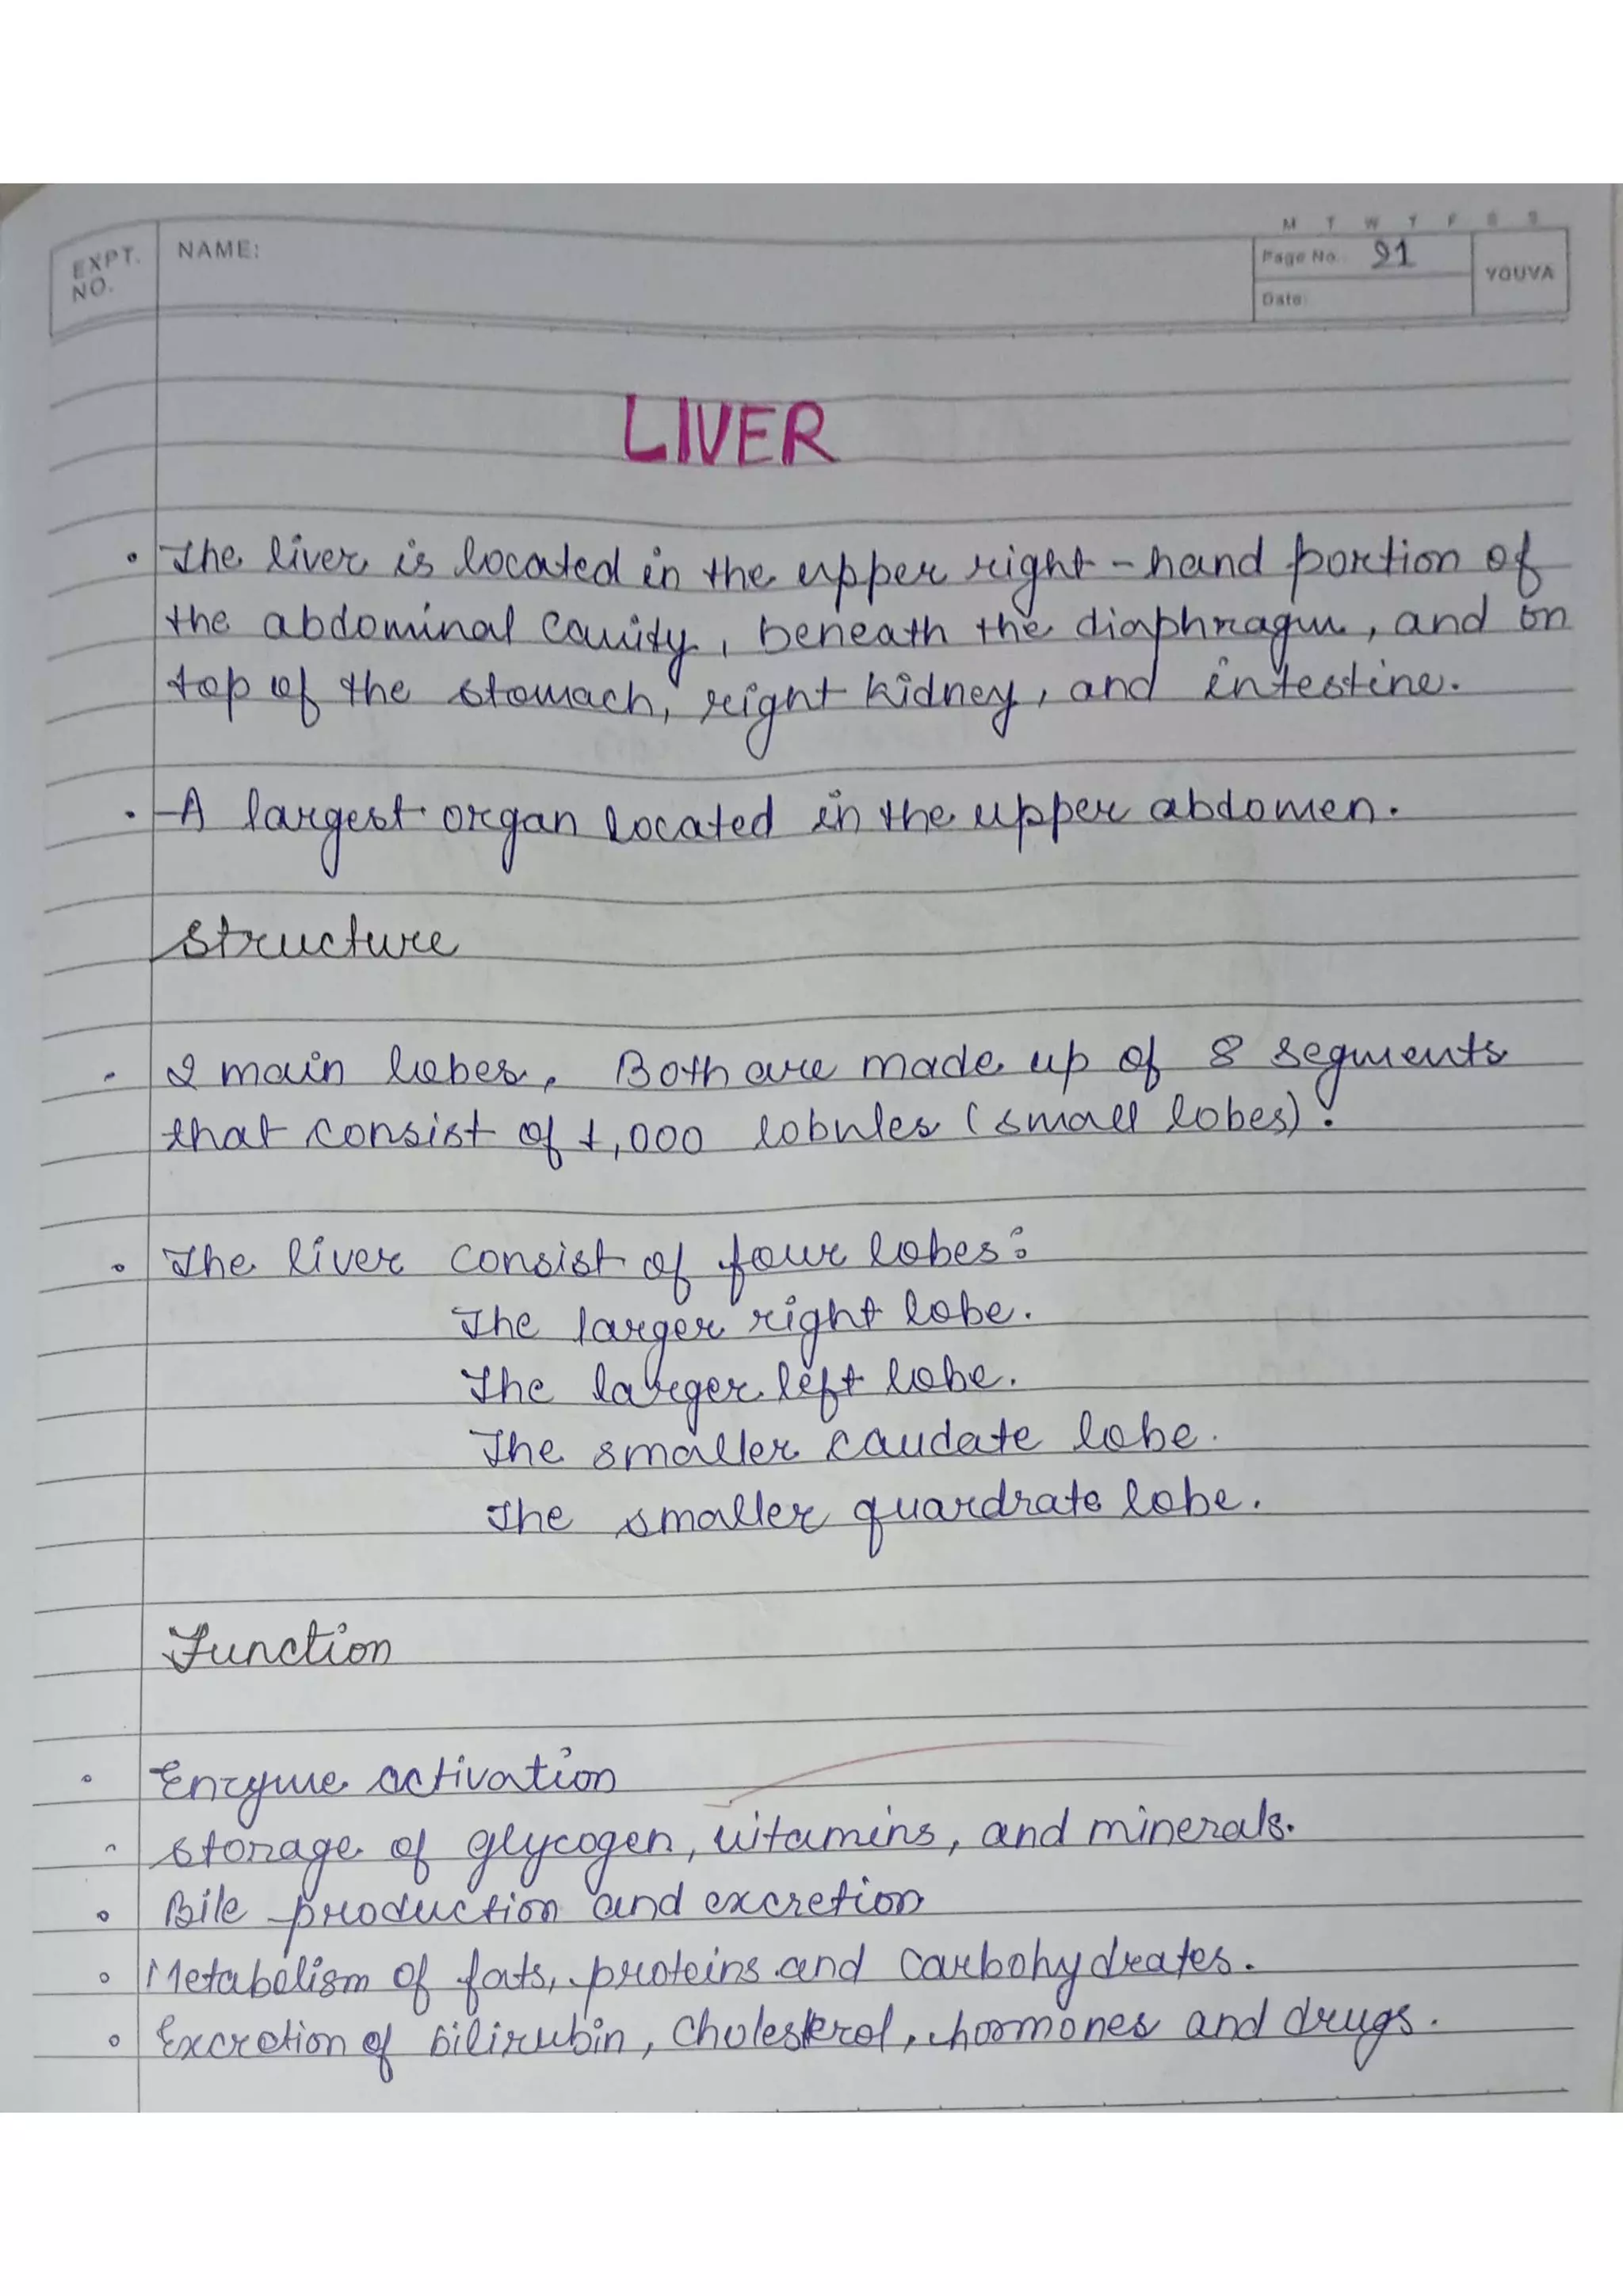 M T W T F S S
EXPT. NO.
NAME:
Page No. 91
Date:
YOUVA
LIVER
• The liver is located in the upper right-hand portion of
the abdominal cavity, beneath the diaphragm, and on
top of the stomach, right kidney, and intestine.
• A largest organ located in the upper abdomen.
Structure
• 2 main lobes. Both are made up of 8 segments
that consist of 1,000 lobules (small lobes).
• The liver consist of four lobes:
The larger right lobe.
The larger left lobe.
The smaller caudate lobe.
The smaller quardrate lobe.
Function
• Enzyme activation
• Storage of glycogen, vitamins, and minerals.
• Bile production and excretion
• Metabolism of fats, proteins and carbohydrates.
• Excretion of bilirubin, cholesterol, hormones and drugs.